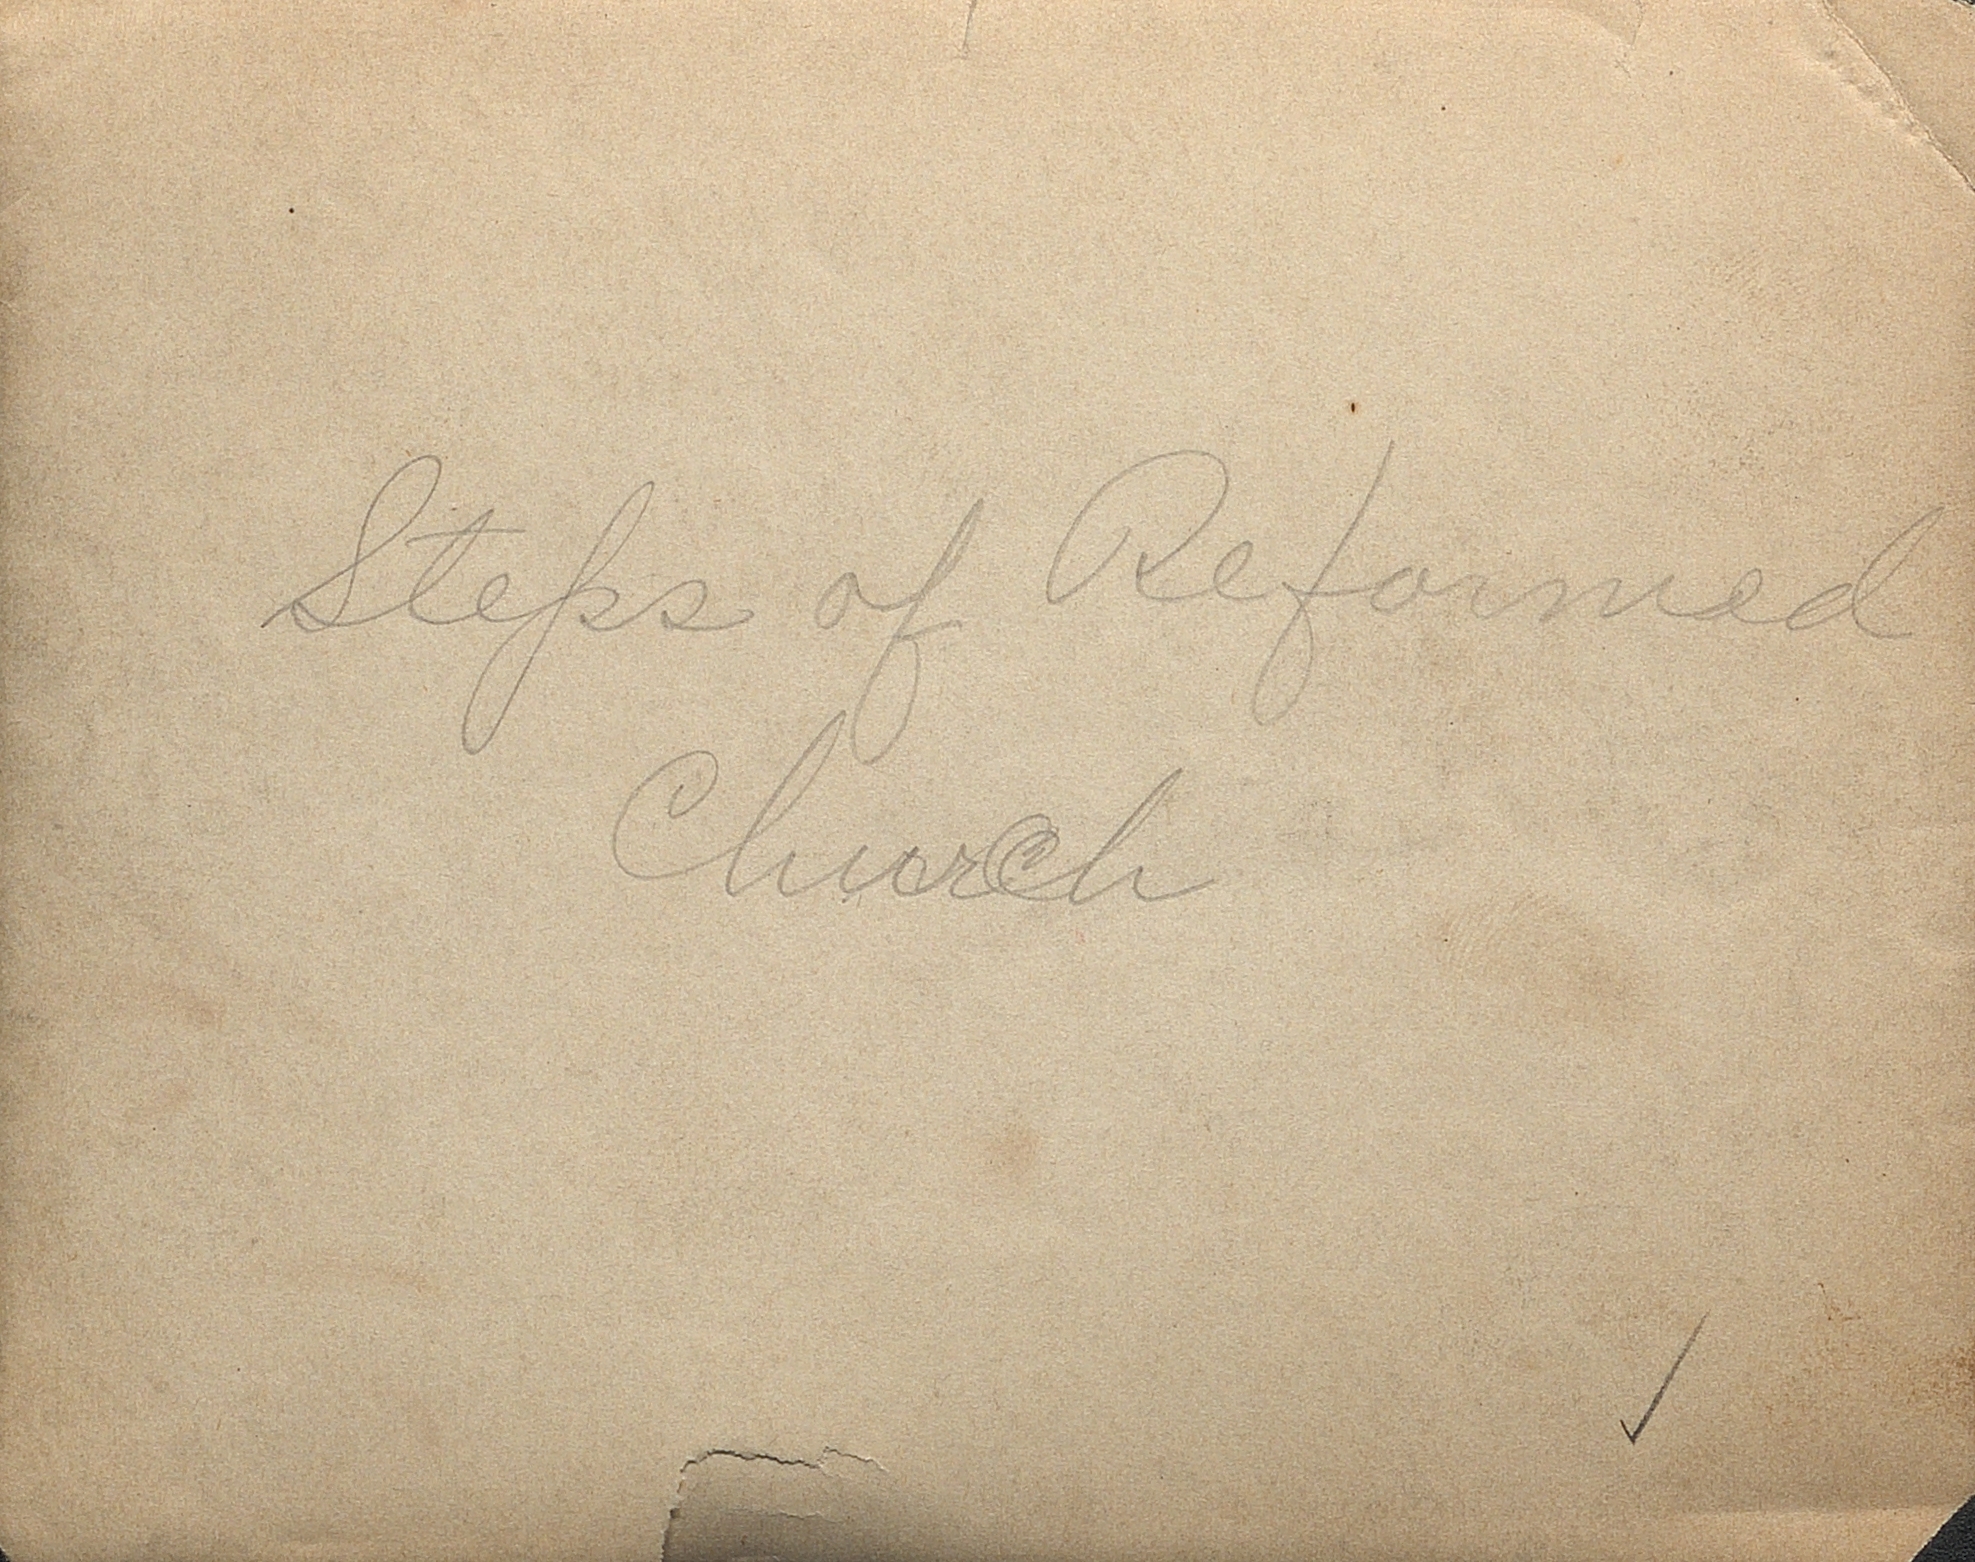 Steps of Reformed
Church